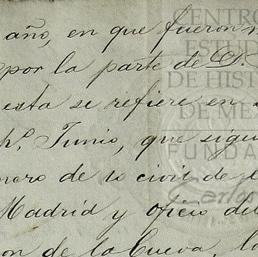 año, en que fueron
por la parte de D.
esta se refiere en
Junio, que sigu
naro de lo civil de l
Madrid y oficio del
on de la Cueva, la
CENTRO
ESTUD
DE HIST
DE MÉ
FUNDA
Carlos